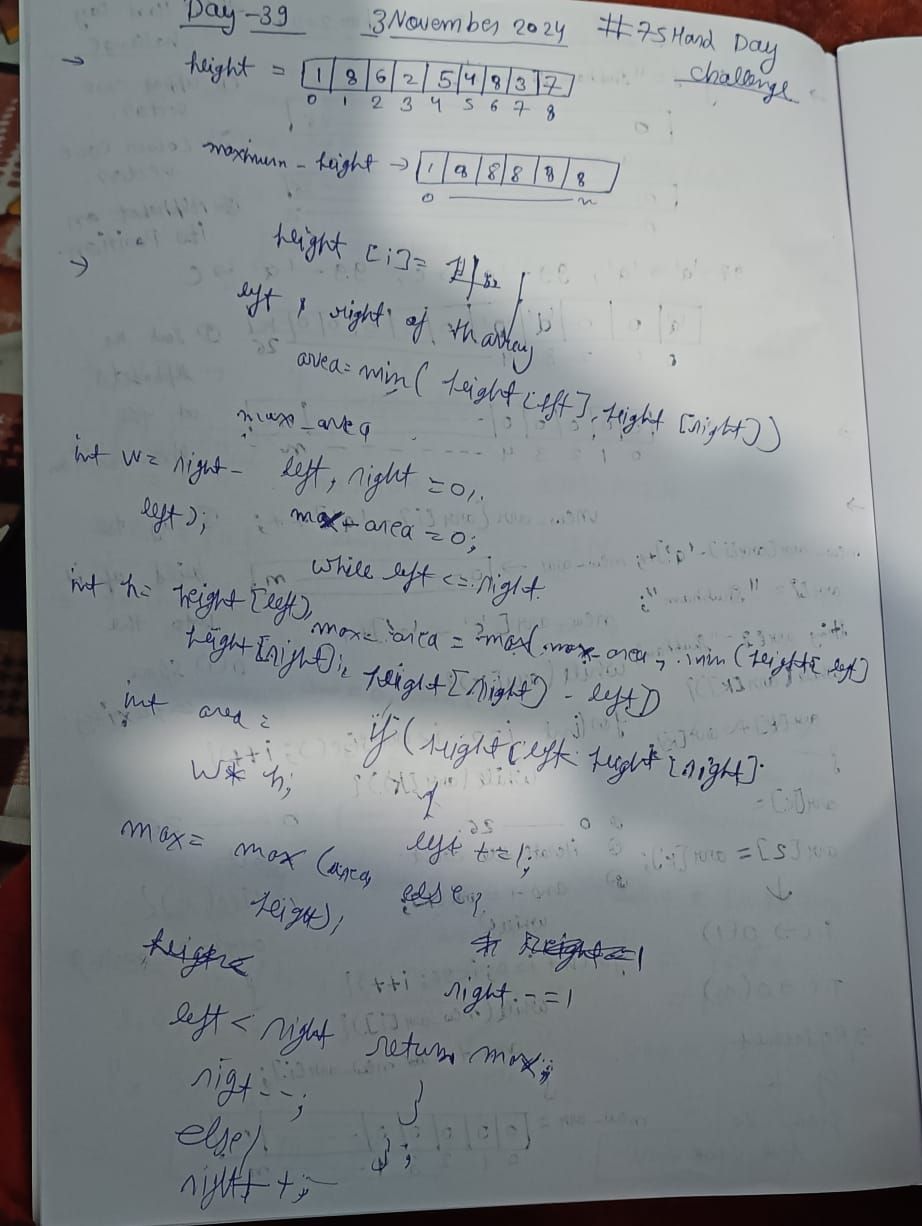 Day-39 3 November 2024 #75 Hard Day
challenge
→ height = 1 8 6 2 5 4 8 3 7
0 1 2 3 4 5 6 7 8
maximum - height → 1 8 8 8 8 8
0 n
→ height [i] =
left, right of th array
area = min( height [left], height [right])
max - area
int w = right - left);
left, right = 0;
max - area = 0;
while left <= right
int h = height [left), height [right];
max - area = max(max-area, min (height[left]
height [right) - left])
int area = w * h;
if (height [left height [right].
{
left += 1;
max = max (area, height),
else
right - = 1
left < right
return max;
right --;
}
else)
} ;
right ++;